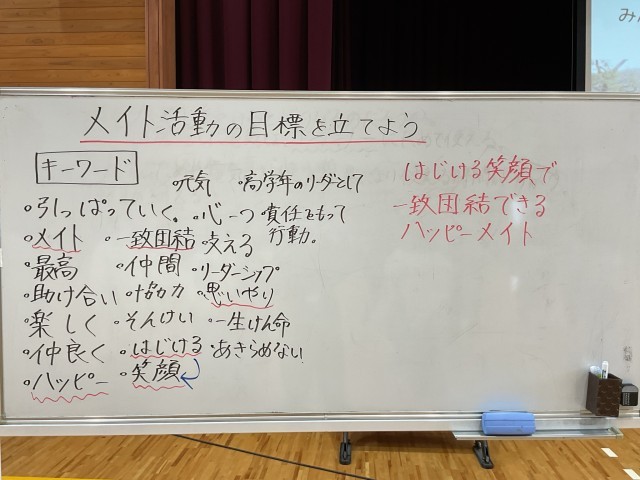 メイト活動の目標を立てよう
キーワード
・元気 ・高学年のリーダーとして
・引っぱっていく。・心一つ ・責任をもって行動。
・メイト ・一致団結 ・支える
・最高 ・仲間 ・リーダーシップ
・助け合い ・協力 ・思いやり
・楽しく ・そんけい ・一生けん命
・仲良く ・はじける ・あきらめない
・ハッピー ・笑顔
はじける笑顔で
一致団結できる
ハッピーメイト
み